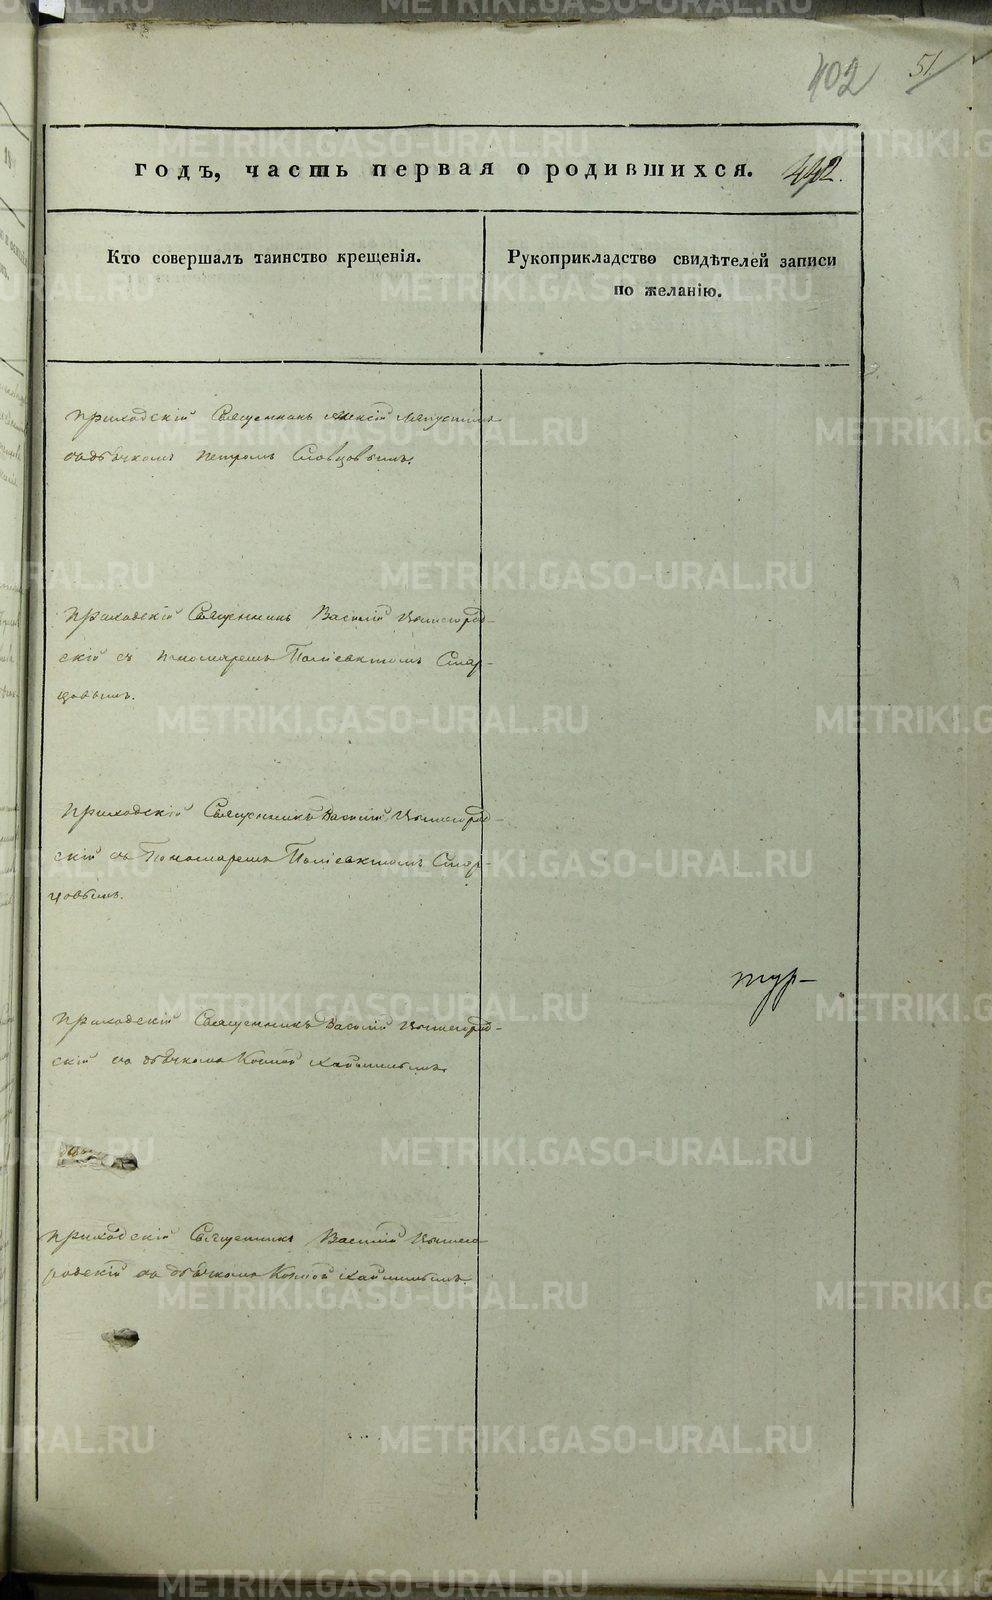 402 51
годъ, часть первая о родившихся. 442.
Кто совершалъ таинство крещенія.
Рукоприкладство свидѣтелей записи
по желанію.
Приходскій Священникъ Алексій
съ дьячкомъ Петромъ Словцовымъ.
Приходскій Священникъ Василій Вышегород-
скій съ Пономаремъ Поліевктомъ Стар-
цовымъ.
Приходскій Священникъ Василій Вышегород-
скій съ Пономаремъ Поліевктомъ Стар-
цовымъ.
тур-
Приходскій Священникъ Василій Вышегород-
скій съ дьячкомъ Космой
Приходскій Священникъ Василій Вышего
родскій съ дьячкомъ Космой
METRIKI.GASO-URAL.RU